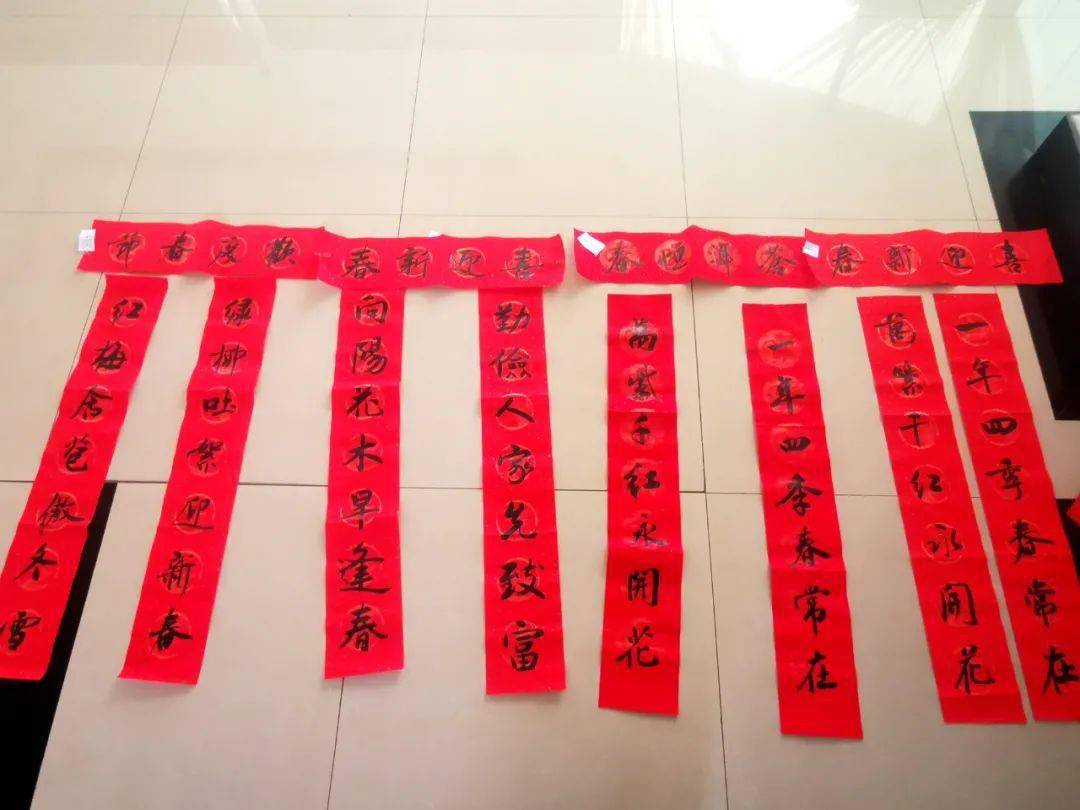 喜迎新春
一年四季春常在
萬紫千红永開花
苍洱恒春
一年四季春常在
萬紫千红永開花
喜迎新春
勤儉人家先致富
向陽花木早逢春
歡度春節
绿柳吐絮迎新春
红梅含苞傲冬雪